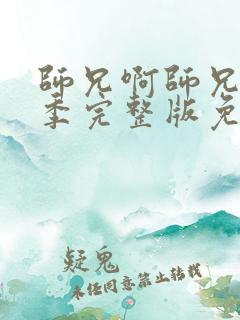 師兄啊師兄
季完整版免
疑鬼
未經同意禁止轉載